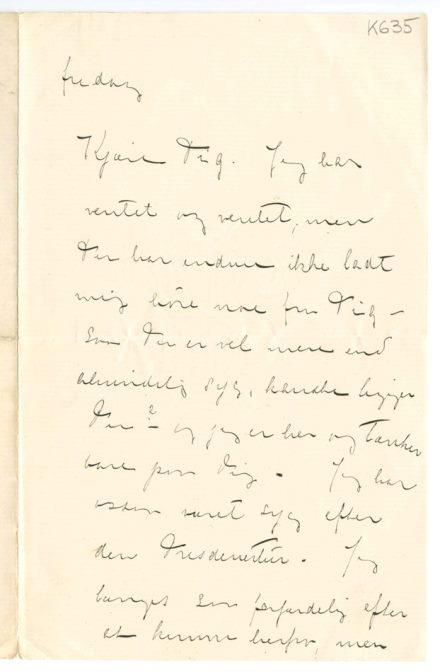 K635
fredag
Kjære Dig. Jeg har
ventet og ventet, men
Du har endnu ikke ladt
mig höre noe fra Dig –
saa Du er vel mere end
almindelig syg, kanske ligger
Du? – og jeg er her og tænker
bare paa Dig. Jeg har
ogsaa været syg efter
den Dresdenertur. Jeg
længes saa forfærdelig efter
at komme herfra, men